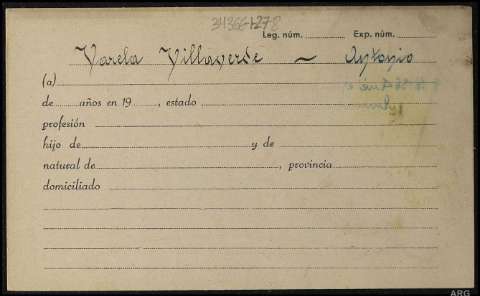 34366-1278
Leg. núm. Exp. núm.
Varela Villaverde — Antonio
(a)
de años en 19 , estado
profesión
hijo de y de
natural de , provincia
domiciliado
ARG